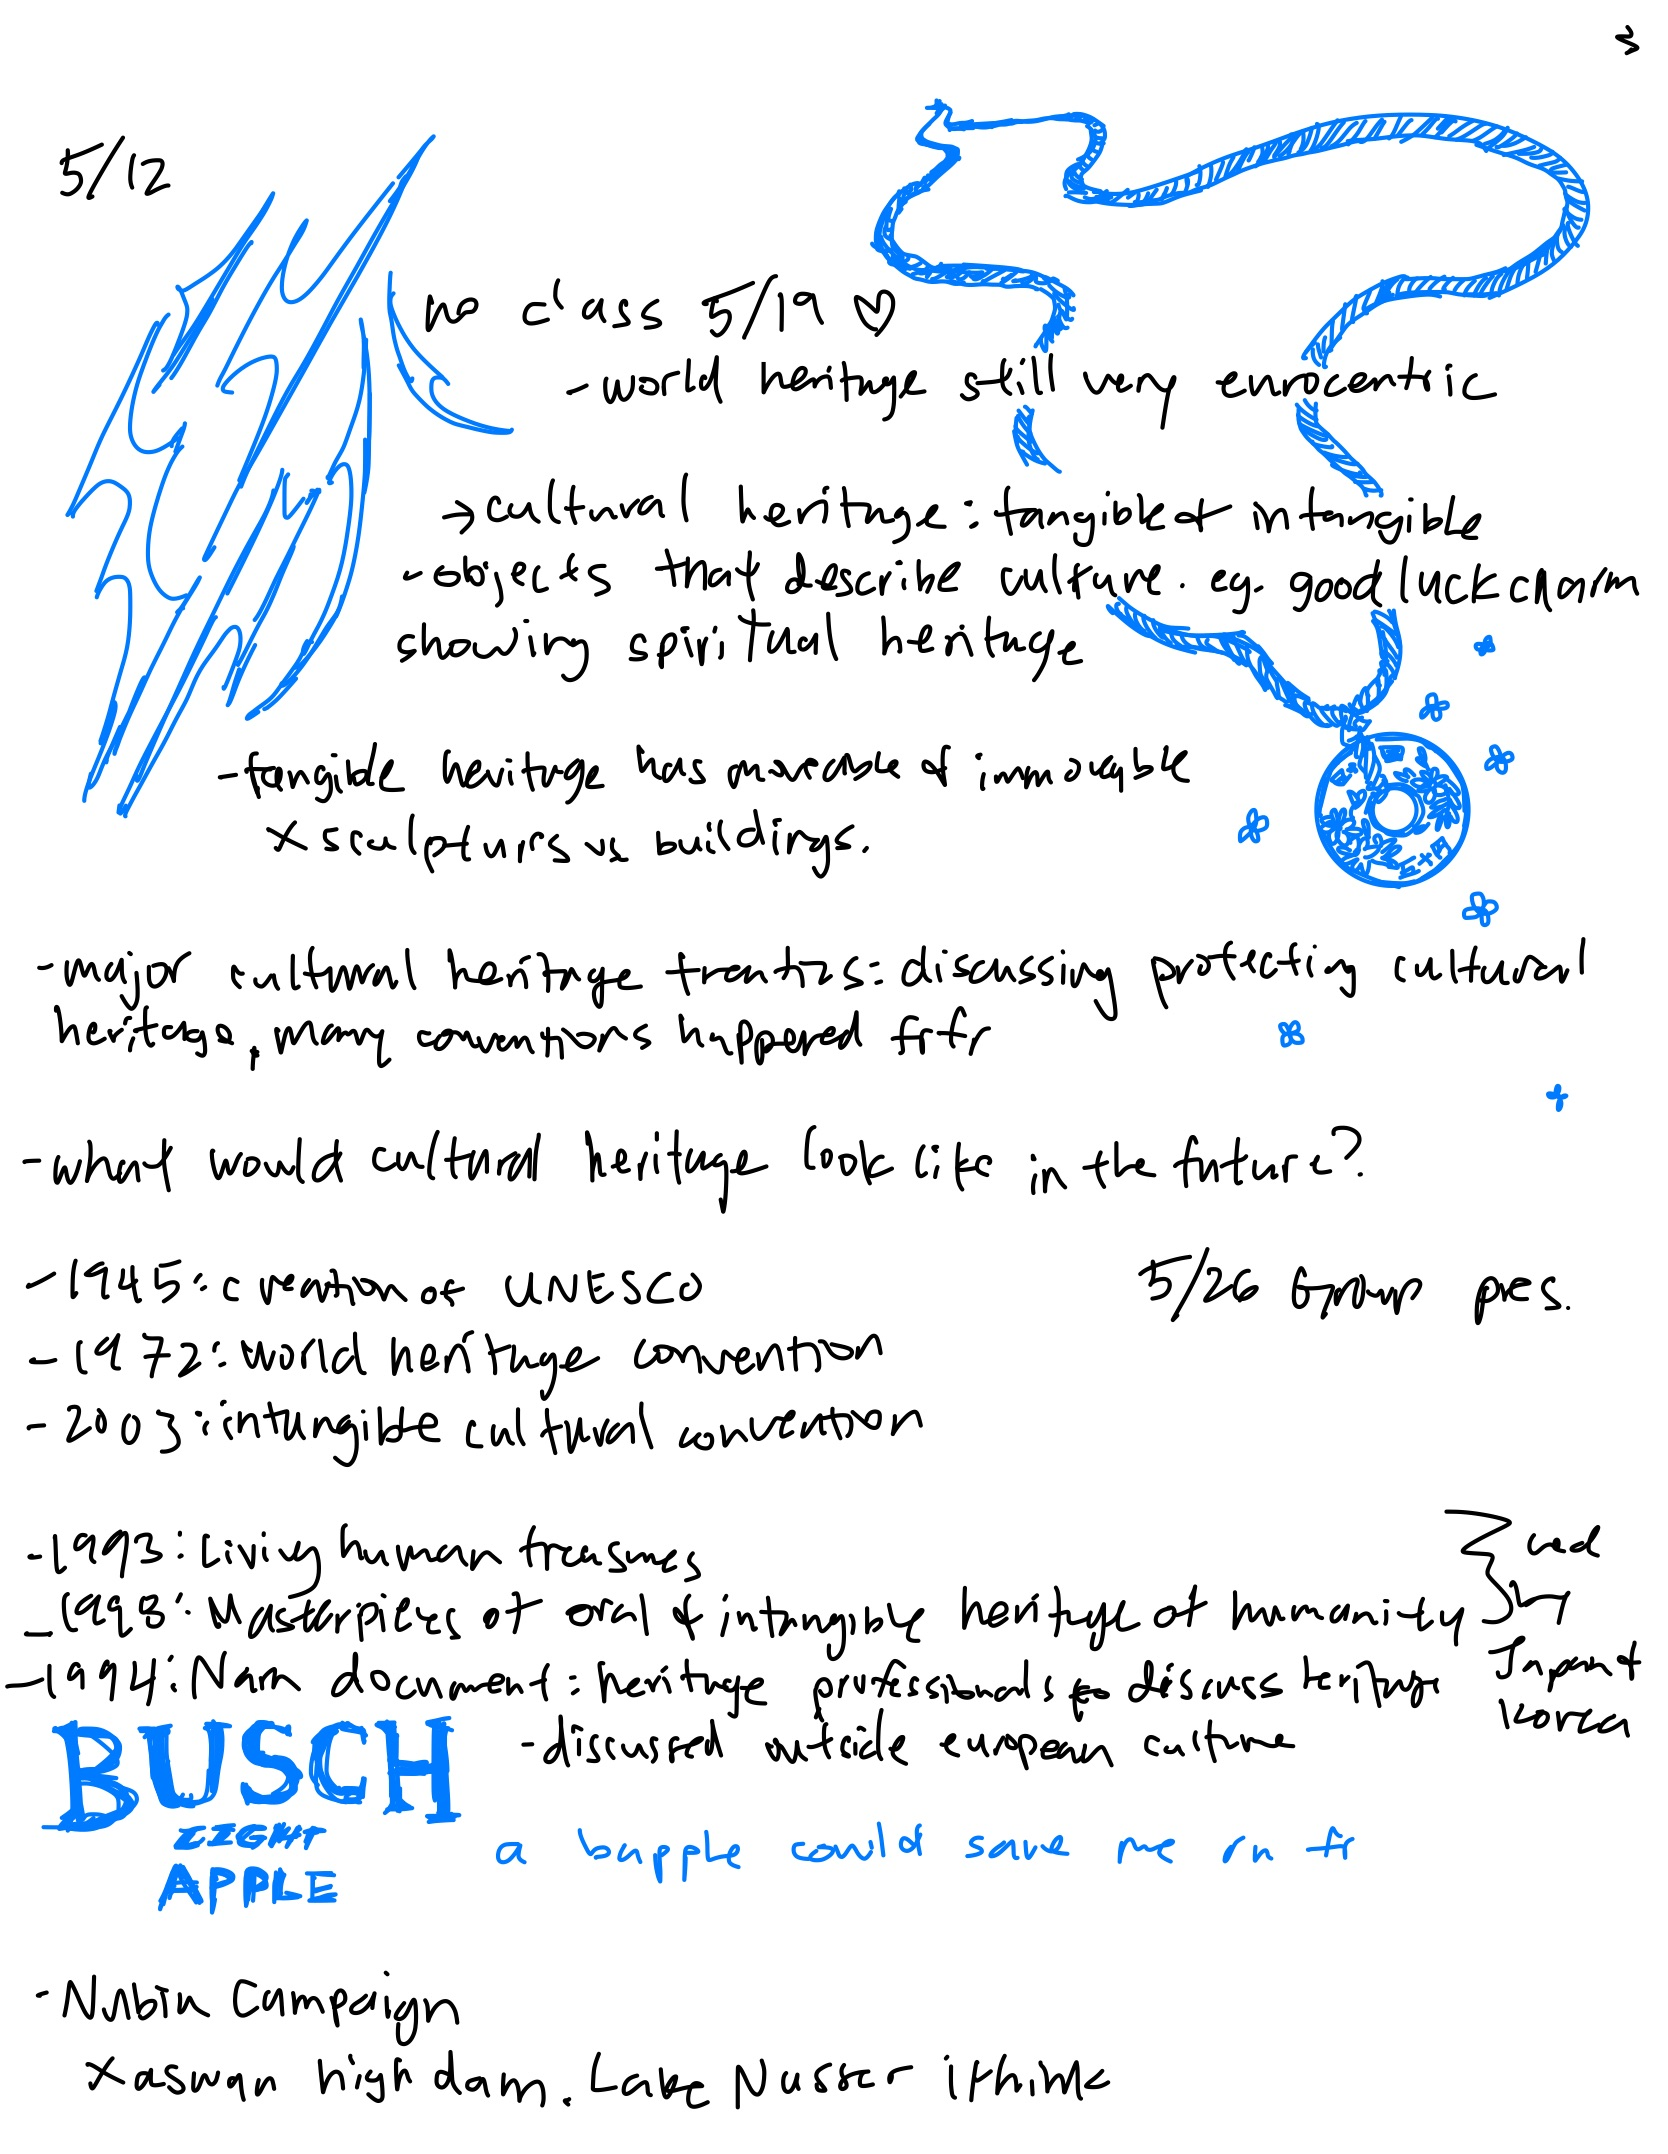 3
5/12
no class 5/19 ♡
- world heritage still very eurocentric
→ cultural heritage: tangible & intangible
- objects that describe culture. eg. good luck charm
showing spiritual heritage
- tangible heritage has moveable & immovable
x sculptures vs buildings.
- major cultural heritage treaties: discussing protecting cultural
heritage, many conventions happened frfr
- what would cultural heritage look like in the future?
- 1945: creation of UNESCO
5/26 Group pres.
- 1972: world heritage convention
- 2003: intangible cultural convention
- 1993: Living human treasures
- 1998: Masterpieces of oral & intangible heritage of humanity
led by
Japan &
Korea
- 1994: Nara document: heritage professionals to discuss heritage
- discussed outside european culture
BUSCH
LIGHT
APPLE
a bapple could save me rn fr
- Nubia Campaign
x aswan high dam. Lake Nasser i think